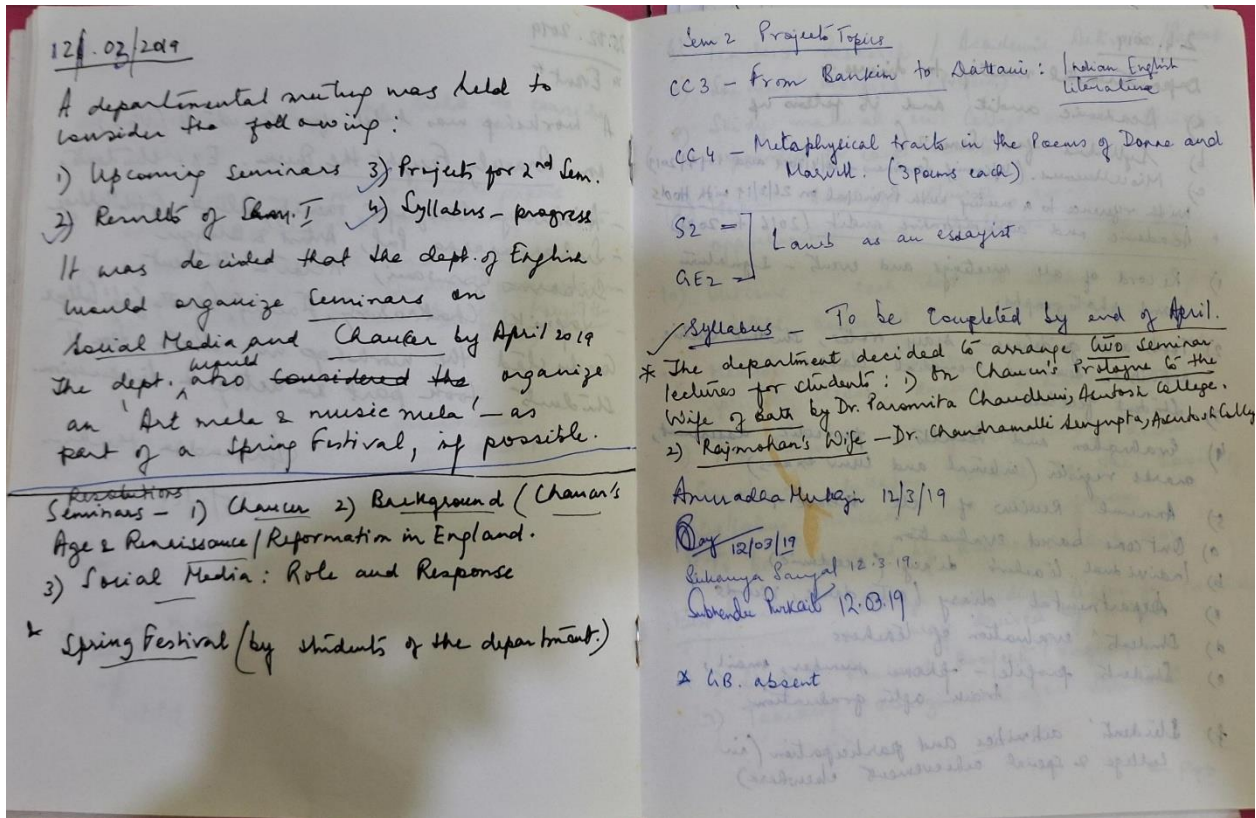 12/.03/2019
A departmental meeting was held to
consider the following:
1) Upcoming Seminars 3) Projects for 2nd Sem.
2) Results of Sem. I 4) Syllabus – progress
It was decided that the dept. of English
would organize Seminars on
Social Media and Chaucer by April 2019
The dept. would also considered the organize
an 'Art mela & music mela' – as
part of a Spring Festival, if possible.
Resolutions
Seminars – 1) Chaucer 2) Background (Chaucer's
Age & Renaissance/Reformation in England.
3) Social Media: Role and Response
* Spring Festival (by students of the department.)
Sem 2 Projects Topics
CC3 – From Bankim to Dattani: Indian English
Literature
CC4 – Metaphysical traits in the Poems of Donne and
Marvell. (3 poems each).
S2 =
Lamb as an essayist
GE2 =
Syllabus – To be completed by end of April.
* The department decided to arrange two seminar
lectures for students: 1) On Chaucer's Prologue to the
Wife of Bath by Dr. Paromita Chaudhuri, Asutosh College.
2) 'Rajmohan's Wife' – Dr. Chandramalli Sengupta, Asutosh College
Anuradha Mukherji 12/3/19
Roy 12/03/19
Sukanya Sanyal 12.3.19
Subhendu Purkait 12.03.19
* GB. absent